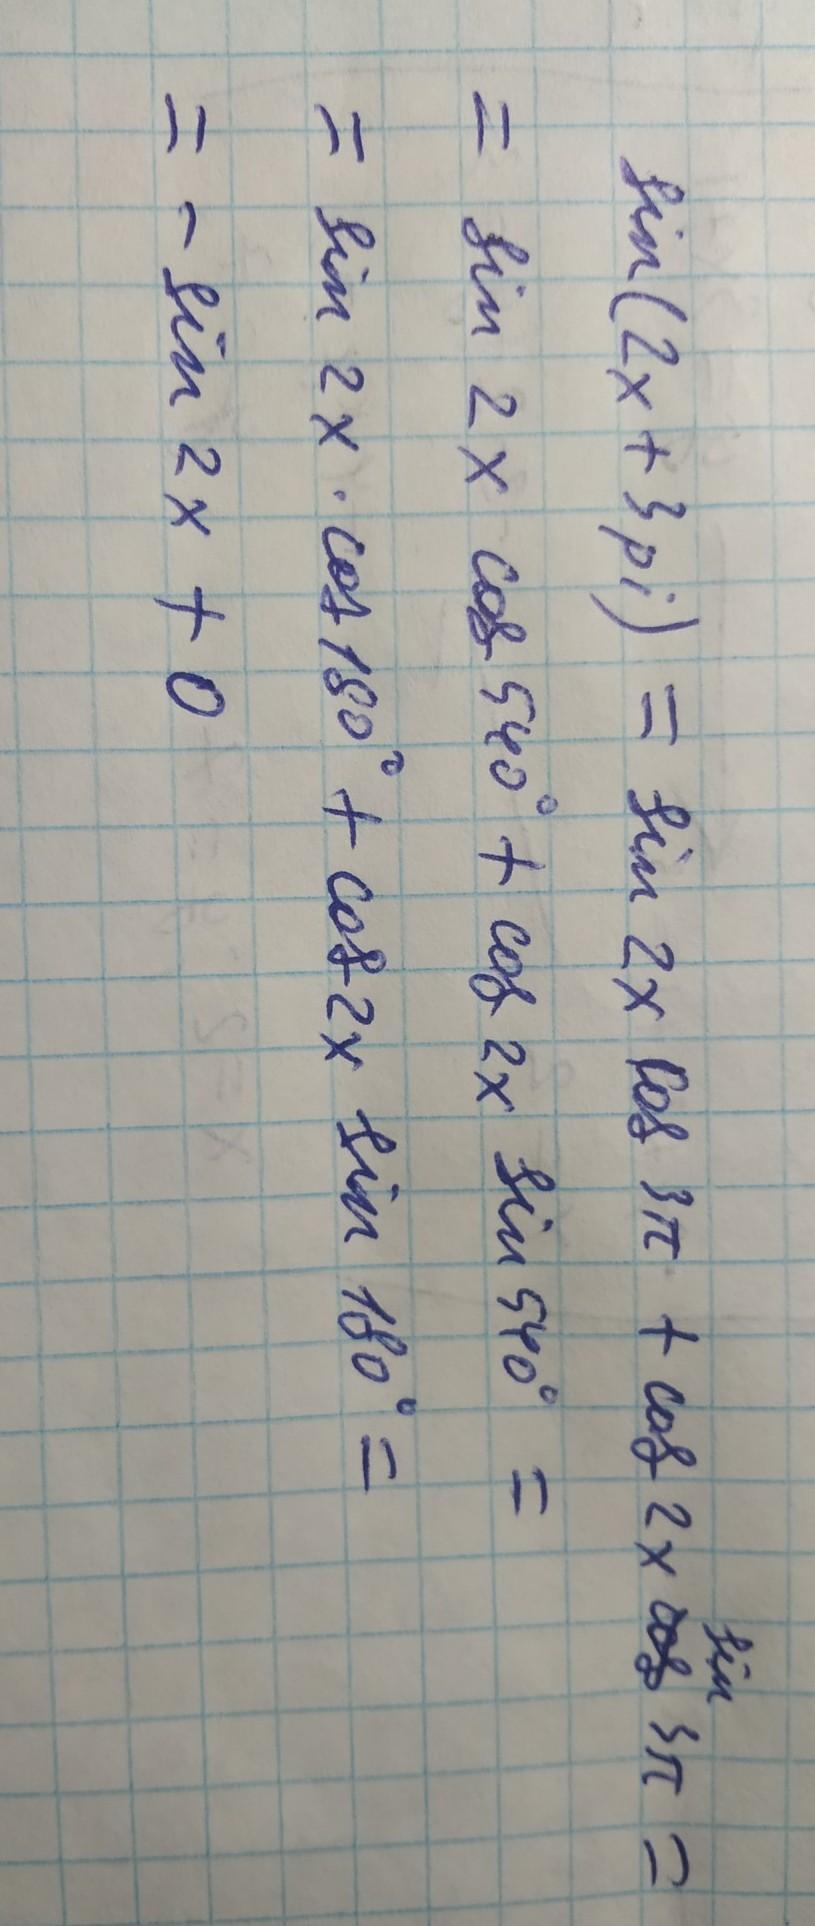 sin(2x + 3pi) = sin 2x cos 3π + cos 2x sin 3π =
= sin 2x cos 540° + cos 2x sin 540° =
= sin 2x · cos 180° + cos 2x sin 180° =
= - sin 2x + 0